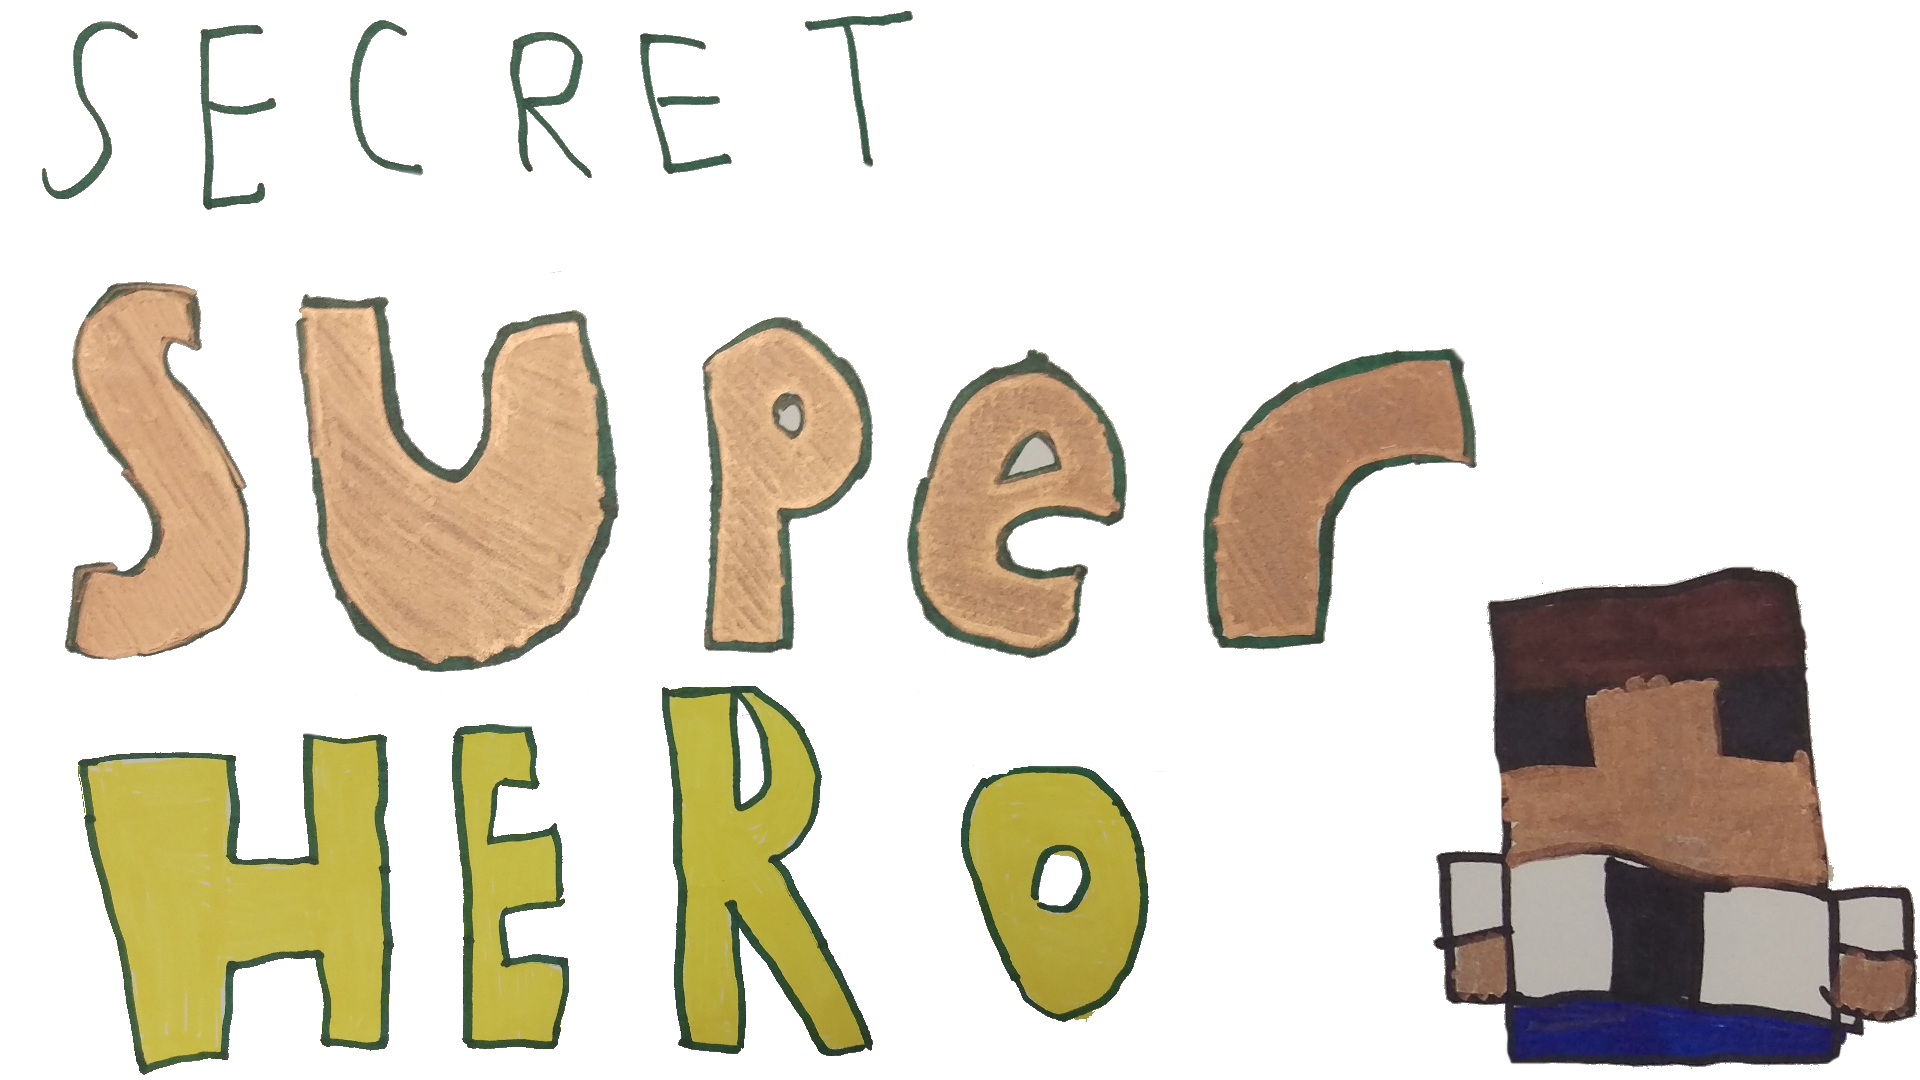 SECRET
SUPer
HERO